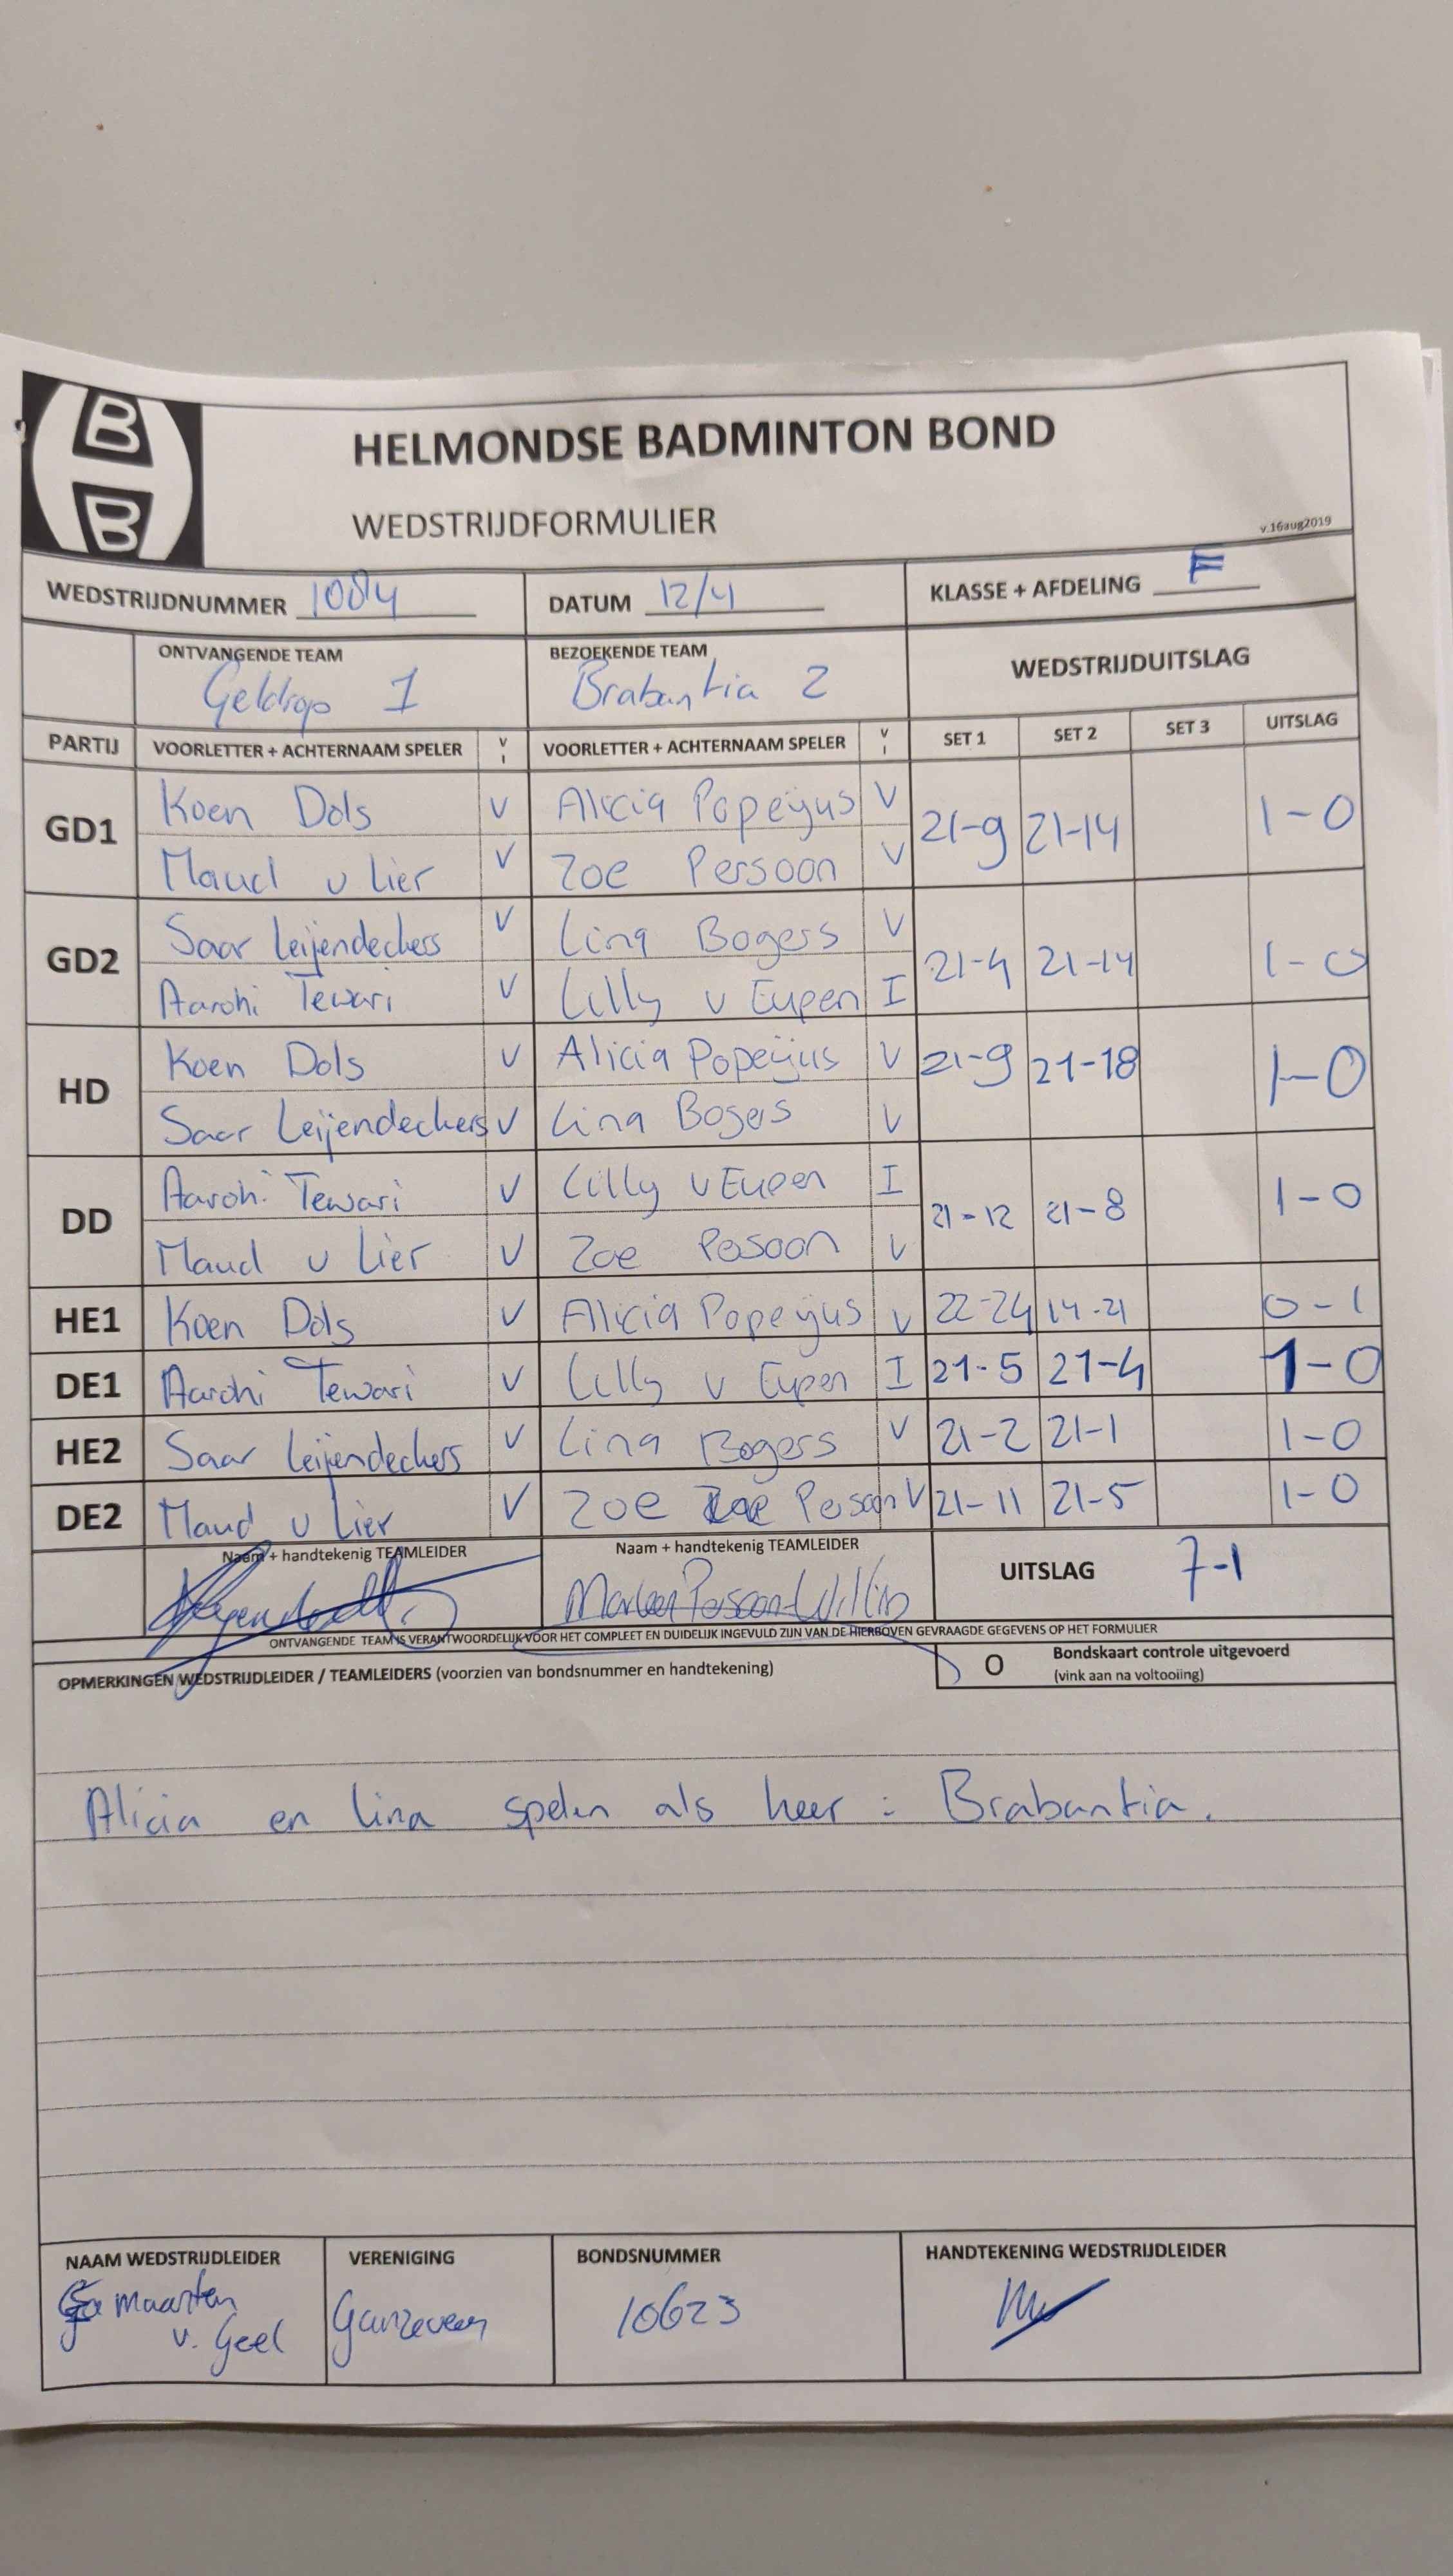 B
B
HELMONDSE BADMINTON BOND
WEDSTRIJDFORMULIER
v.16aug2019
WEDSTRIJDNUMMER 1084 DATUM 12/4 KLASSE + AFDELING F
ONTVANGENDE TEAM BEZOEKENDE TEAM WEDSTRIJDUITSLAG
Geldrop 1 Brabantia 2
PARTIJ VOORLETTER + ACHTERNAAM SPELER V I VOORLETTER + ACHTERNAAM SPELER V I SET 1 SET 2 SET 3 UITSLAG
GD1 Koen Dols V Alicia Popeijus V 21-9 21-14 1-0
Maud v Lier V Zoe Persoon V
GD2 Saar Leijendeckers V Lina Bogers V 21-4 21-14 1-0
Aarohi Tewari V Lilly v Eupen I
HD Koen Dols V Alicia Popeijus V 21-9 21-18 1-0
Saar Leijendeckers V Lina Bogers V
DD Aarohi Tewari V Lilly v Eupen I 21-12 21-8 1-0
Maud v Lier V Zoe Persoon V
HE1 Koen Dols V Alicia Popeijus V 22-24 14-21 0-1
DE1 Aarohi Tewari V Lilly v Eupen I 21-5 21-4 1-0
HE2 Saar Leijendeckers V Lina Bogers V 21-2 21-1 1-0
DE2 Maud v Lier V Zoe Persoon V 21-11 21-5 1-0
Naam + handtekenig TEAMLEIDER Naam + handtekenig TEAMLEIDER UITSLAG 7-1
Marleen Persoon-Willis
ONTVANGENDE TEAM IS VERANTWOORDELIJK VOOR HET COMPLEET EN DUIDELIJK INGEVULD ZIJN VAN DE HIERBOVEN GEVRAAGDE GEGEVENS OP HET FORMULIER
OPMERKINGEN WEDSTRIJDLEIDER / TEAMLEIDERS (voorzien van bondsnummer en handtekening) O Bondskaart controle uitgevoerd
(vink aan na voltooiing)
Alicia en Lina spelen als heer : Brabantia.
NAAM WEDSTRIJDLEIDER VERENIGING BONDSNUMMER HANDTEKENING WEDSTRIJDLEIDER
maarten
v. Geel Ganzeveer 10623